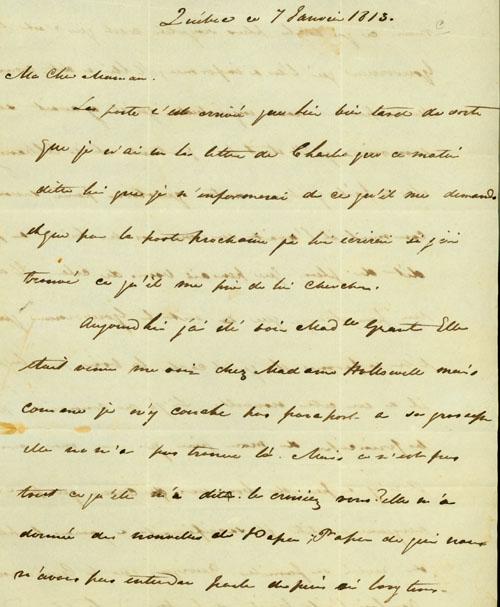 Québec ce 7 Janvier 1813.
Ma Cher Maman.
La poste c'est arrivée que hier bien tard de sorte
que je n'ai eu la lettre de Charle que ce matin
dites lui que je m'informerai de ce qu'il me demande
et que par la poste prochaine je lui écrirai si j'ai
trouvé ce qu'il me prie de lui chercher.
Aujourdhui j'ai été voir Mad.lle Grant. Elle
était venue me voir chez Madame mais
comme je n'y couche pas paraport a sa grossesse
elle ne m'a pas trouvée là. Mais ce n'est pas
tout ce qu'elle m'a dit. le croiriez vous? elle m'a
donnée des nouvelles de Papa, Papa de qui nous
n'avons pas entendu parlé depuis si longtems.